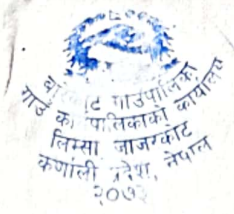 बारेकोट गाउँपालिका
गाउँ कार्यपालिकाको कार्यालय
लिम्सा जाजरकोट
कर्णाली प्रदेश, नेपाल
२०७३